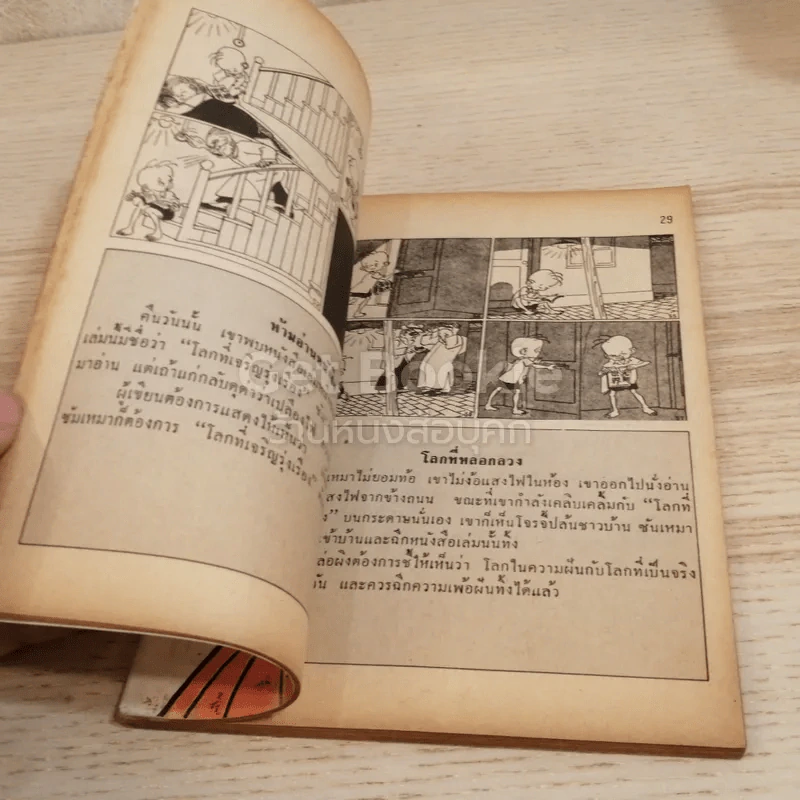 ห้ามอ่าน
คืนวันนั้น เขาพบหนังสือ
เล่มนี้มีชื่อว่า “โลกที่เจริญรุ่งเรือง”
มาอ่าน แต่เถ้าแก่กลับดุด่าว่าเปลืองไฟ
ผู้เขียนต้องการแสดงให้เห็นว่า
ซันเหมาก็ต้องการ “โลกที่เจริญรุ่งเรือง”
29
โลกที่หลอกลวง
เหมาไม่ยอมท้อ เขาไม่ง้อแสงไฟในห้อง เขาออกไปนั่งอ่าน
แสงไฟจากข้างถนน ขณะที่เขากำลังเคลิบเคลิ้มกับ “โลกที่
” บนกระดาษนั่นเอง เขาก็เห็นโจรจี้ปล้นชาวบ้าน ซันเหมา
เข้าบ้านและฉีกหนังสือเล่มนั้นทิ้ง
ล่อผิงต้องการชี้ให้เห็นว่า โลกในความฝันกับโลกที่เป็นจริง
กัน และควรฉีกความเพ้อฝันทิ้งได้แล้ว
Get Bookie
ร้านหนังสือบุคกี้